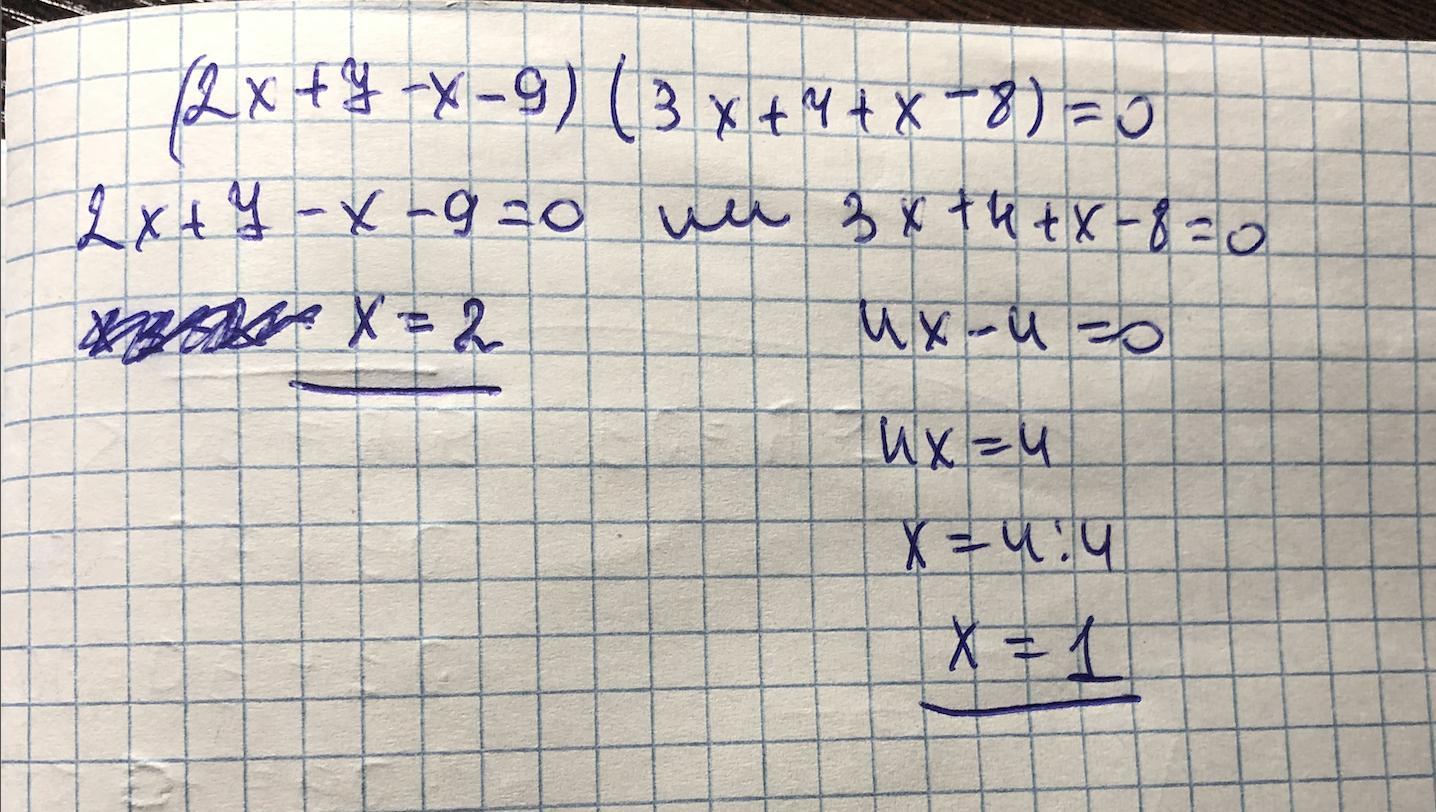 (2x+7-x-9)(3x+4+x-8)=0
2x+7-x-9=0 или 3x+4+x-8=0
x=2 4x-4=0
4x=4
x=4:4
x=1